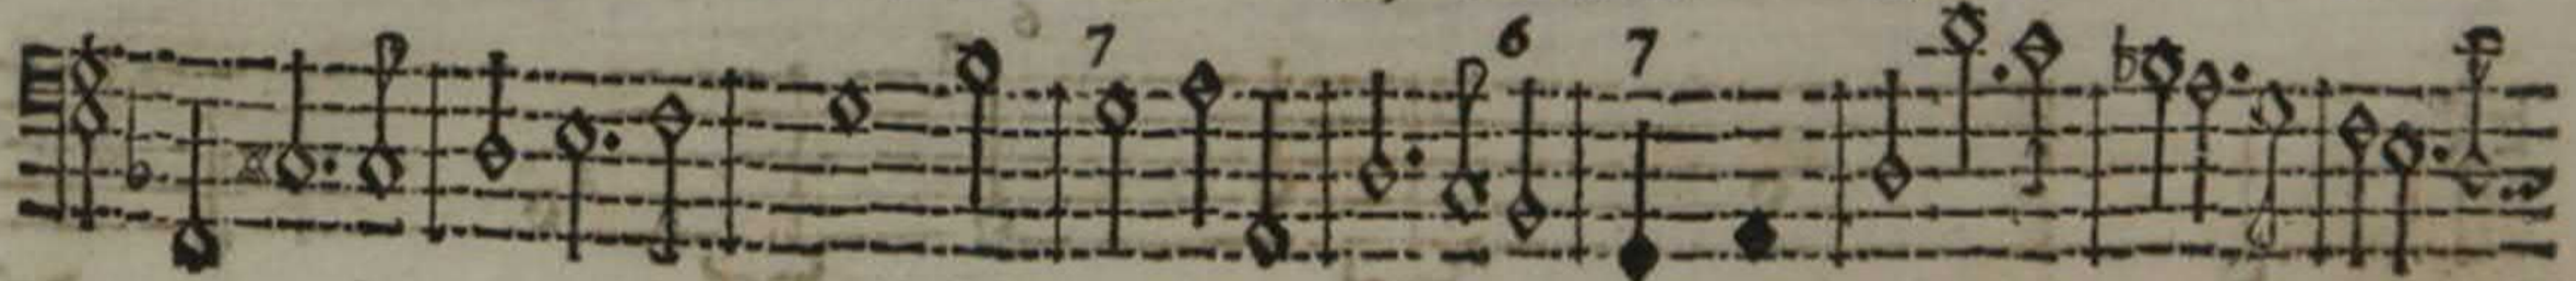 7 6 7